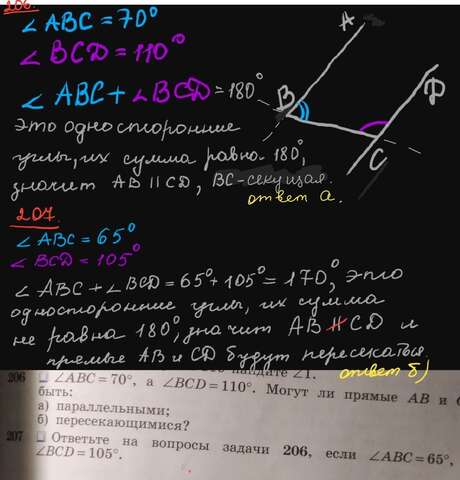 206.
∠ABC = 70°
∠BCD = 110°
∠ABC + ∠BCD = 180°
Это односторонние
углы, их сумма равна 180°,
значит AB ∥ CD, BC-секущая.
ответ а.
A
B
C
D
207.
∠ABC = 65°
∠BCD = 105°
∠ABC + ∠BCD = 65° + 105° = 170°, это
односторонние углы, их сумма
не равна 180°, значит AB ∦ CD и
прямые AB и CD будут пересекаться.
ответ б)
найдите ∠1.
206 ∠ABC = 70°, а ∠BCD = 110°. Могут ли прямые AB и
быть:
а) параллельными;
б) пересекающимися?
207 Ответьте на вопросы задачи 206, если ∠ABC = 65°,
∠BCD = 105°.